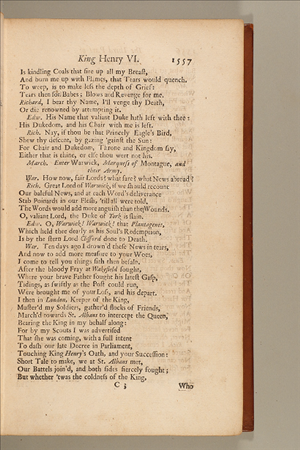 King Henry VI. 1557
Is kindling Coals that fire up all my Breast,
And burn me up with Flames, that Tears would quench.
To weep, is to make less the depth of Grief:
Tears then for Babes; Blows and Revenge for me.
Richard, I bear thy Name, I'll venge thy Death,
Or die renowned by attempting it.
Edw. His Name that valiant Duke hath left with thee:
His Dukedom, and his Chair with me is left.
Rich. Nay, if thou be that Princely Eagle's Bird,
Shew thy descent, by gazing 'gainst the Sun:
For Chair and Dukedom, Throne and Kingdom say,
Either that is thine, or else thou wert not his.
March. Enter Warwick, Marquess of Montague, and
their Army.
War. How now, fair Lords? what fare? what News abroad?
Rich. Great Lord of Warwick, if we should recount
Our baleful News, and at each Word's deliverance
Stab Poinards in our Flesh, 'till all were told,
The Words would add more anguish than the Wounds.
O, valiant Lord, the Duke of York is slain.
Edw. O, Warwick! Warwick! that Plantagenet,
Which held thee dearly as his Soul's Redemption,
Is by the stern Lord Clifford done to Death.
War. Ten days ago I drown'd these News in tears,
And now to add more measure to your Woes,
I come to tell you things sith then befaln.
After the bloody Fray at Wakefield fought,
Where your brave Father fought his latest Gasp,
Tidings, as swiftly as the Post could run,
Were brought me of your Loss, and his depart.
I then in London, Keeper of the King,
Muster'd my Soldiers, gather'd flocks of Friends,
March'd towards St. Albans to intercept the Queen,
Bearing the King in my behalf along:
For by my Scouts I was advertised
That she was coming, with a full intent
To dash our late Decree in Parliament,
Touching King Henry's Oath, and your Succession:
Short Tale to make, we at St. Albans met,
Our Battels join'd, and both sides fiercely fought;
But whether 'twas the coldness of the King,
C 3 Who